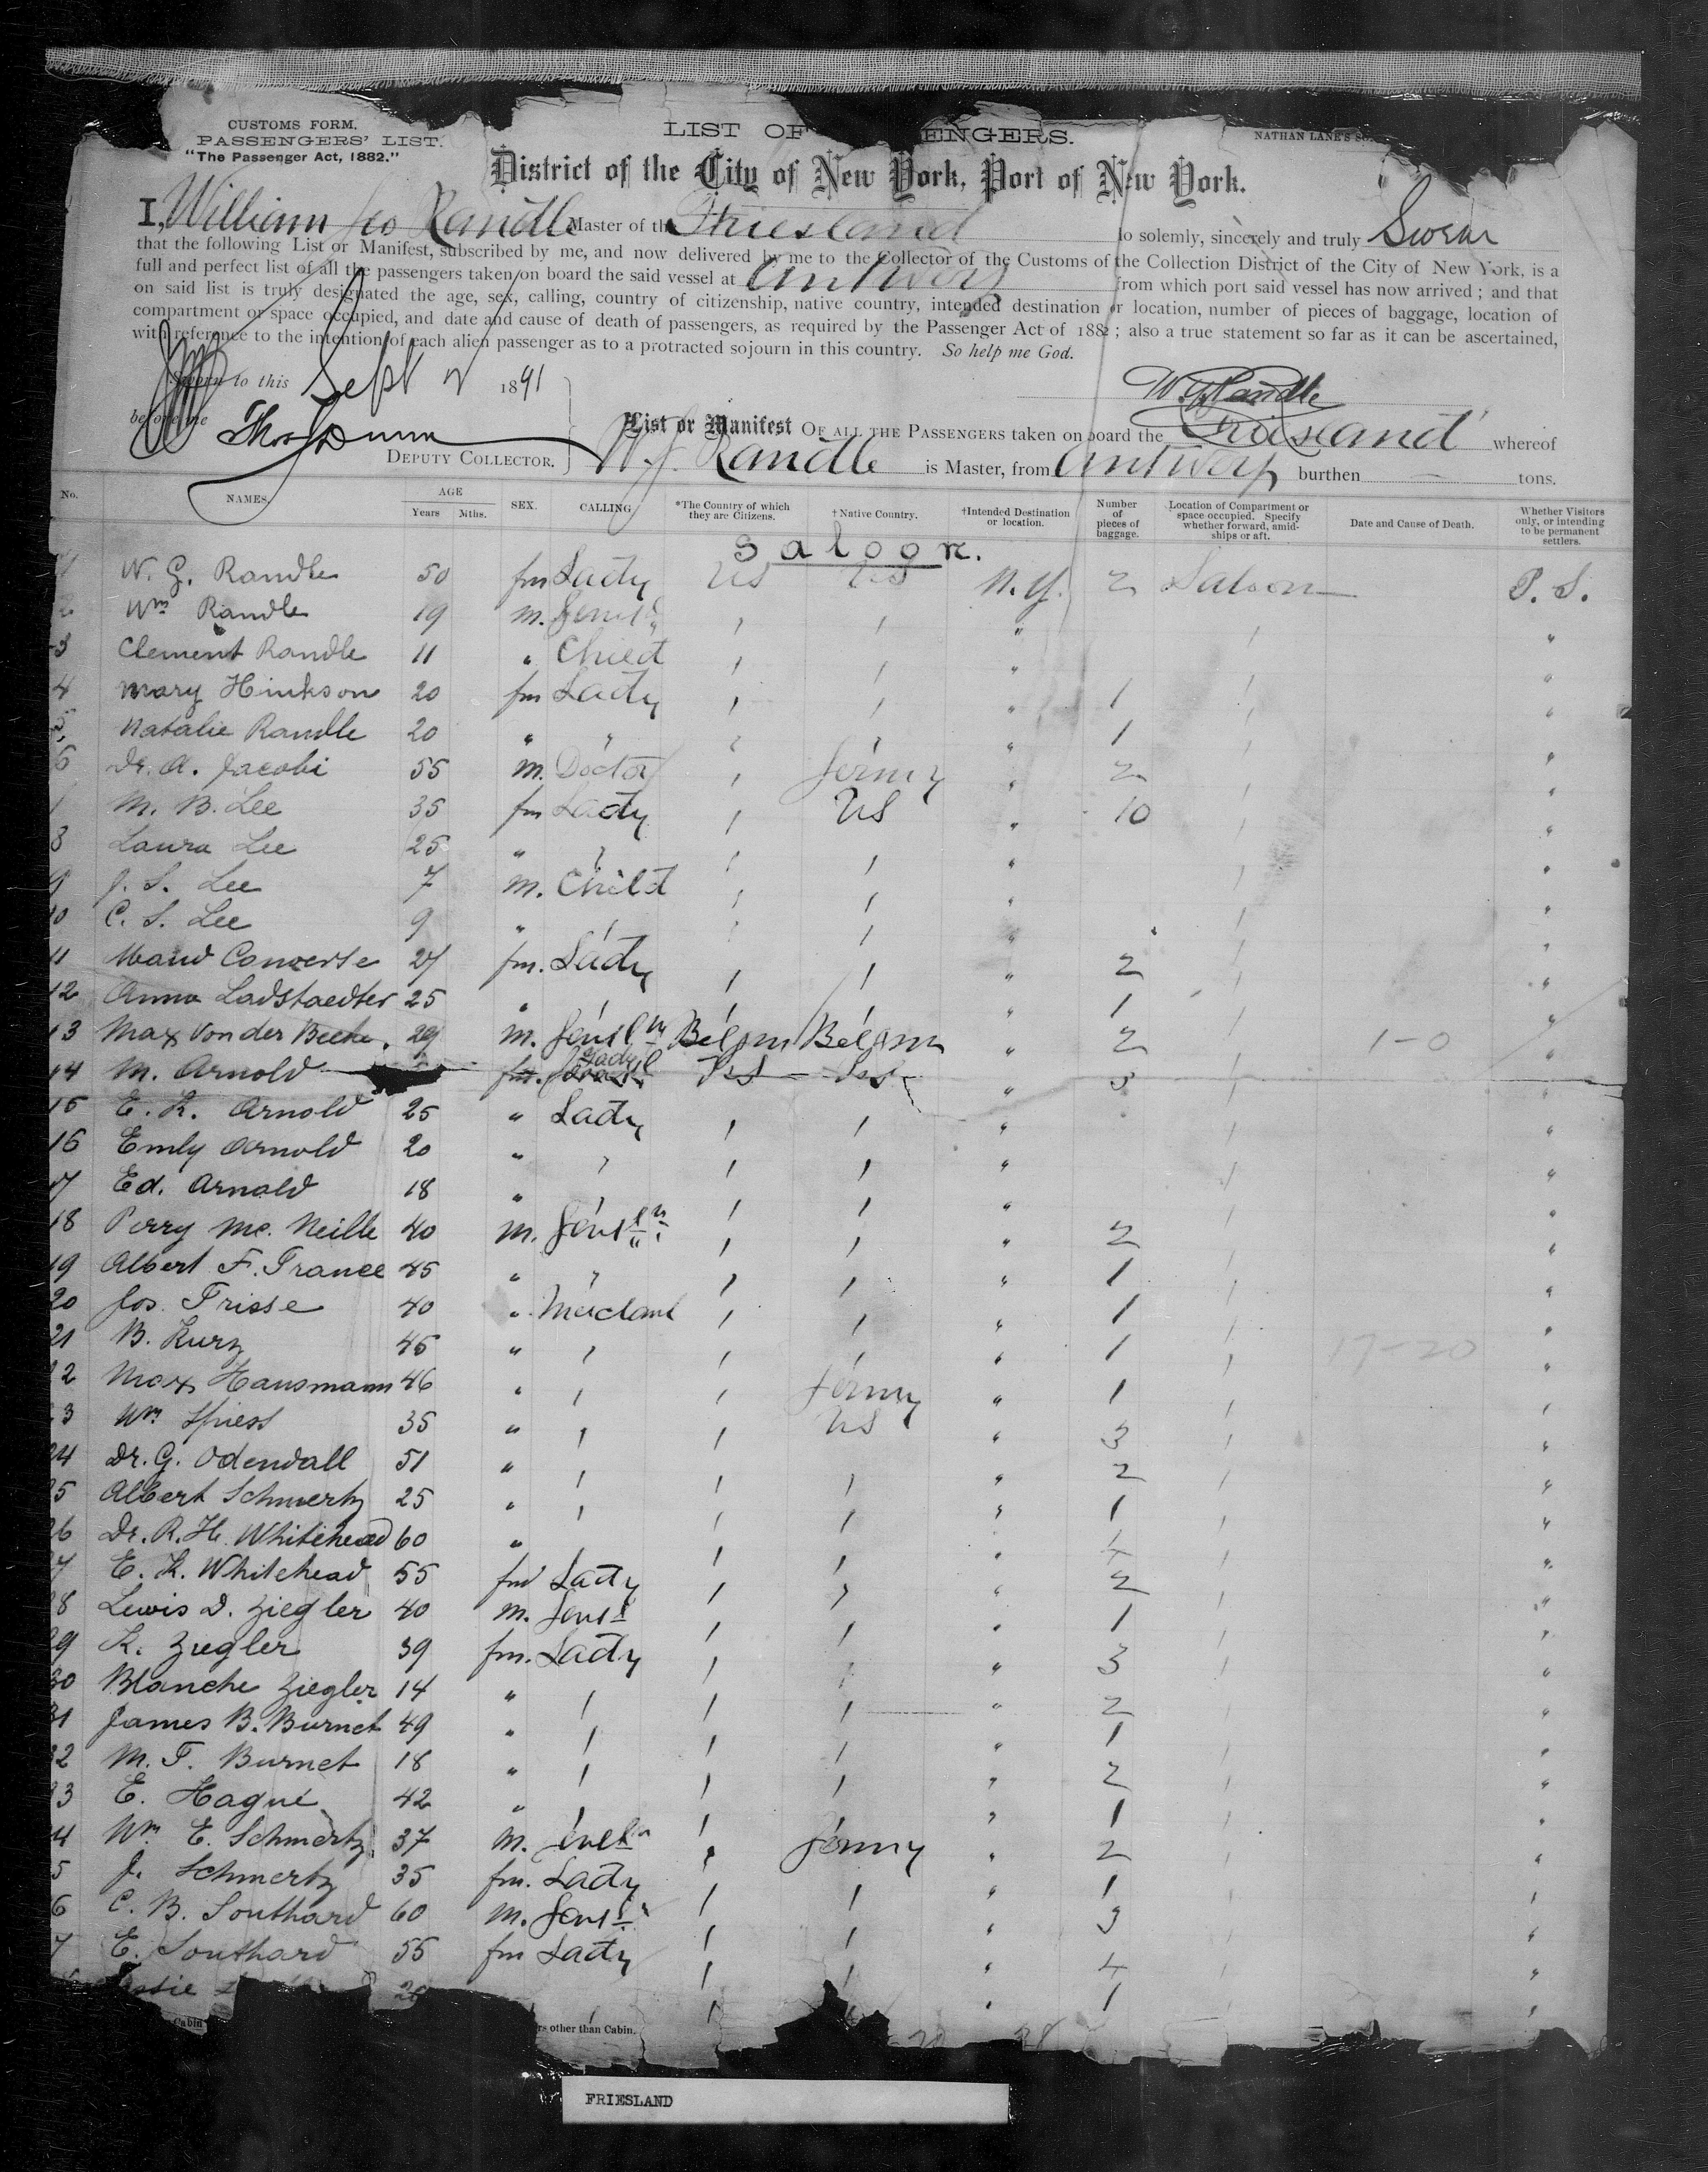 CUSTOMS FORM.
PASSENGERS' LIST.
"The Passenger Act, 1882."
LIST OF ENGERS.
NATHAN LANE'S
District of the City of New York, Port of New York.
I, William Geo Randle Master of the Friesland do solemly, sincerely and truly Swear
that the following List or Manifest, subscribed by me, and now delivered by me to the Collector of the Customs of the Collection District of the City of New York, is a
full and perfect list of all the passengers taken on board the said vessel at Antwerp from which port said vessel has now arrived ; and that
on said list is truly designated the age, sex, calling, country of citizenship, native country, intended destination or location, number of pieces of baggage, location of
compartment or space occupied, and date and cause of death of passengers, as required by the Passenger Act of 1882 ; also a true statement so far as it can be ascertained,
with reference to the intention of each alien passenger as to a protracted sojourn in this country. So help me God.
Sworn to this Sept 2 1891
W. G. Randle
before me Thos Dunn
DEPUTY COLLECTOR.
List or Manifest OF ALL THE PASSENGERS taken on board the Friesland whereof
W. G. Randle is Master, from Antwerp burthen tons.
No. NAMES. AGE Years Mths. SEX. CALLING *The Country of which they are Citizens. †Native Country. †Intended Destination or location. Number of pieces of baggage. Location of Compartment or space occupied. Specify whether forward, amidships or aft. Date and Cause of Death. Whether Visitors only, or intending to be permanent settlers.
Saloon.
1 W. G. Randle 50 fm Lady US US N.Y. 2 Saloon P. S.
2 Wm Randle 19 m. Gentl " "
3 Clement Randle 11 " Child " "
4 Mary Hinkson 20 fm Lady " 1 "
5 Natalie Randle 20 " " " 1 "
6 Dr. A. Jacobi 55 m. Doctor Germy " 2 "
7 M. B. Lee 35 fm Lady US " 10 "
8 Laura Lee 25 " " "
9 J. S. Lee 7 m. Child " "
10 C. S. Lee 9 " " "
11 Maud Converse 27 fm. Lady " 2 "
12 Anna Ladstaedter 25 " " 1 "
13 Max Von der Becke. 29 m. Gentln Belgm Belgm " 2 1-0 "
14 M. Arnold fm. Lady US US " 3 "
15 E. K. Arnold 25 " Lady " "
16 Emly Arnold 20 " " "
17 Ed. Arnold 18 " " "
18 Perry Mc. Neille 40 m. Gentln " 2 "
19 Albert F. France 45 " " " 1 "
20 Jos. Frisse 40 " Merchant " 1 "
21 B. Kurz 45 " " 1 17-20 "
22 Max Hausmann 46 " Germy " 1 "
23 Wm Spiess 35 " US " 3 "
24 Dr. G. Odendall 51 " " 2 "
25 Albert Schmertz 25 " " 1 "
26 Dr. R. H. Whitehead 60 " " 4 "
27 E. K. Whitehead 55 fm Lady " 2 "
28 Lewis D. Ziegler 40 m. Gentl " 1 "
29 K. Ziegler 39 fm. Lady " 3 "
30 Blanche Ziegler 14 " " 2 "
31 James B. Burnet 49 " " 1 "
32 M. F. Burnet 18 " " 2 "
33 E. Hague 42 " " 1 "
34 Wm E. Schmertz. 37 m. Gentln Germy " 2 "
35 J. Schmertz 35 fm. Lady " 1
36 C. B. Southard 60 m. Gentln " 3 "
37 E. Southard 55 fm Lady " 4 "
1
Cabin
rs other than Cabin.
FRIESLAND